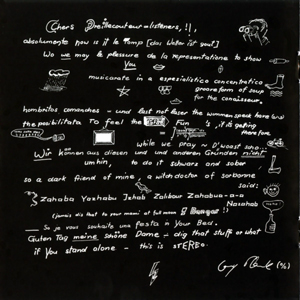 Chers Dreilleicouteur-listeners, !,
absolumento now is it le Tomp [das Wetter ist gout]
Wo we may le plessure de la representatione to show
You
musicarate in a espesialistico concentratico
grooveform of soup
for the conaisseur.
hombritos comanches - und last not lesser the wumman speak here und
the posibilitata To feel the fun 's, it is getting
therefore
while we pray ~ D'woost sho...
Wir können aus diesen und und anderen Gründen nicht
umhin, to do it schwarz and sober
so a dark friend of mine, a witchdoctor of sorbonne
said:
Zahaba Yoxhabu Jehab Zahbour Zahabua-a-a
Nasohab
(jamais dis that to your mami at full moon & Danger!)
So je vous souhaite una fasta in Your Bed.
Guten Tag meine schöne Dame - dig that stuff or what
if You stand alone - this is STEREO.